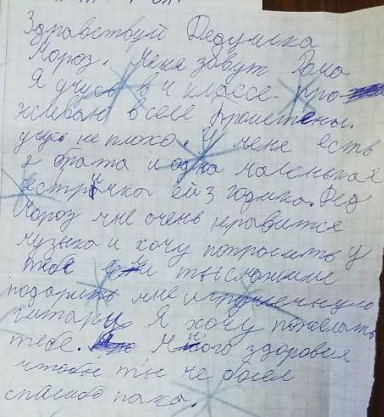 Здравствуй Дедушка
Мороз. Меня зовут Рома
Я учусь в 4 классе. Про
живаю в селе
учусь не плохо. У меня есть
2 брата и одна маленькая
сестричка ей 3 годика. Дед
Мороз мне очень нравится
музыка и хочу попросить у
тебя
подарить мне
гитару Я хочу пожелать
тебе. Много здоровия
чтобы ты не болел
спасибо пока.